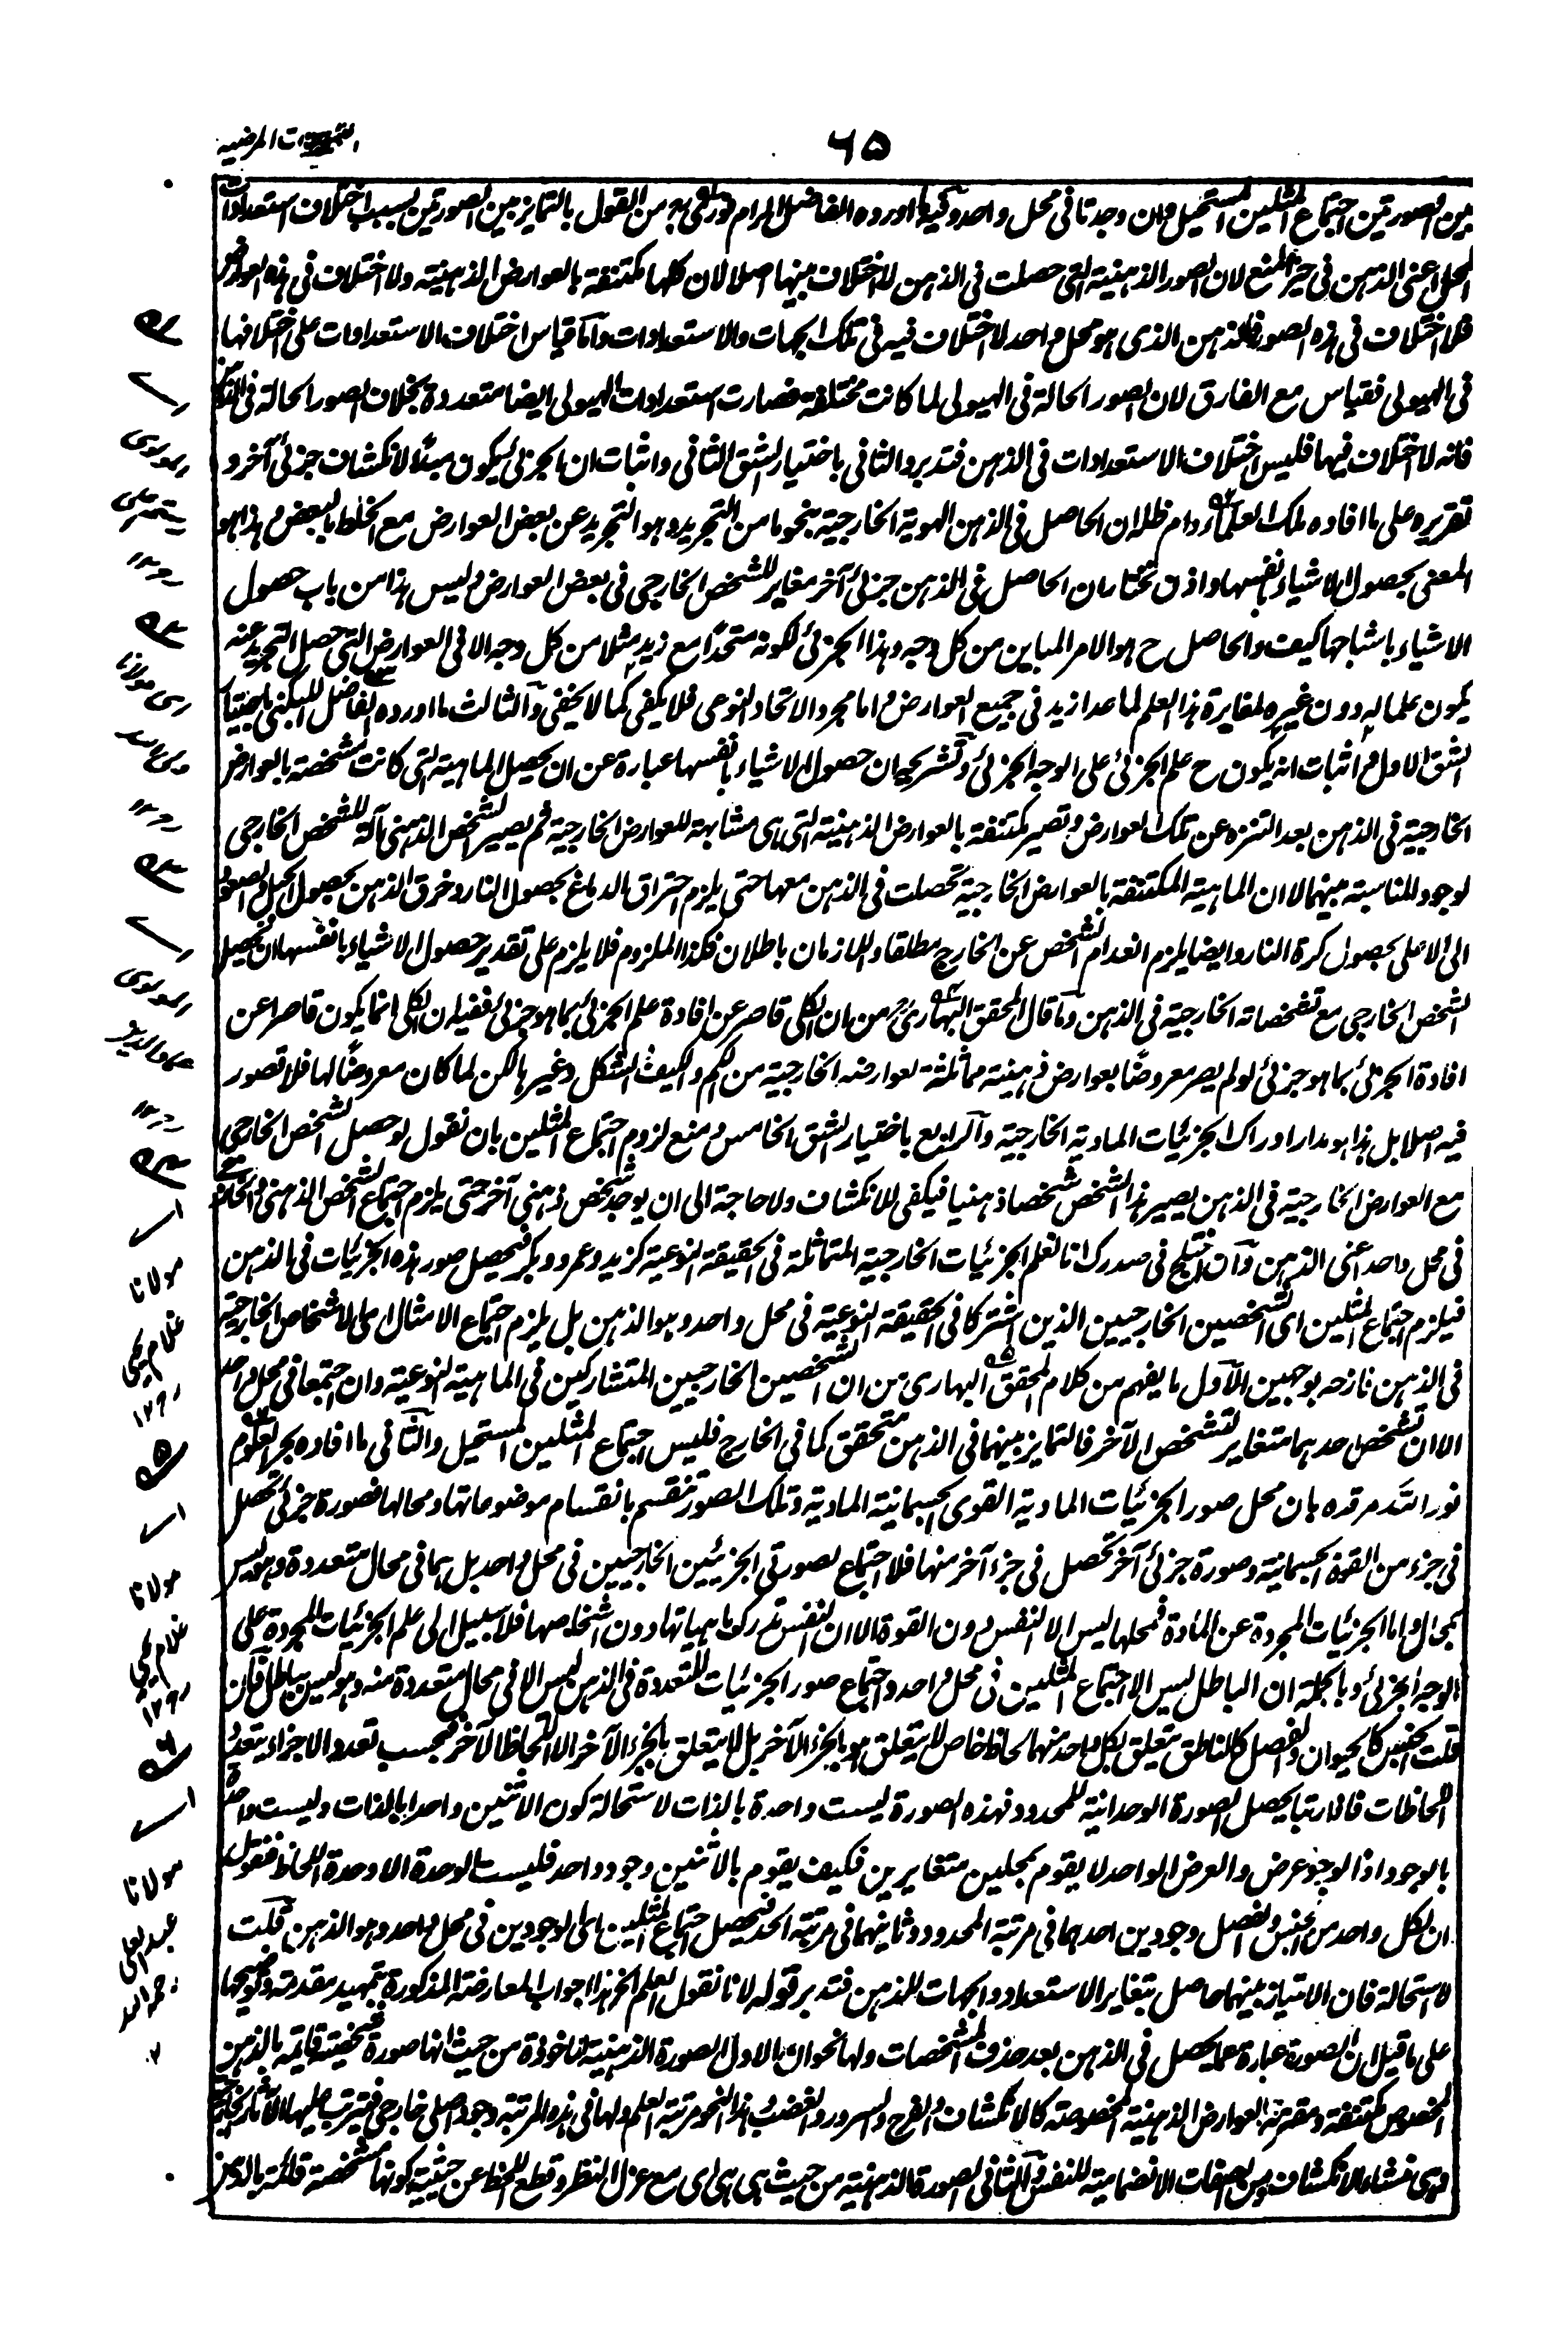 التعليقات المرضيه
٦٥
بين الصورتين اجتماع المثلين المستحيل وان وجدتا في محل واحد وكيف اورده الفاضل المرام من القول بالتمايز بين الصورتين بسبب اختلاف استعدادات
المحل اعني الذهن في حيز المنع لان الصور الذهنية التي حصلت في الذهن لا اختلاف بينها اصلا لان كلها مكتنفة بالعوارض الذهنية ولا اختلاف في هذه العوارض
فلا اختلاف في هذه الصور فالذهن الذي هو محل واحد لا اختلاف فيه في تلك الجهات والاستعدادات وآما قياس اختلاف الاستعدادات على اختلافها
في الهيولى فقياس مع الفارق لان الصور الحالة في الهيولى لما كانت مختلفة فصارت استعدادات الهيولى ايضا متعددة بخلاف الصور الحالة في الذهن
فانه لا اختلاف فيها فليس اختلاف الاستعدادات في الذهن فتدبر والثاني باختيار الشق الثاني واثبات ان الجزئي يكون مبدءً لانكشاف جزئي آخر و
تقريره على ما افاده ملك العلماء دام ظله ان الحاصل في الذهن الهوية الخارجية بنحو ما من التجريد وهو التجريد عن بعض العوارض مع الخلط بالبعض وهذا هو
المعنى بحصول الاشياء بانفسها واذن نختار ان الحاصل في الذهن جزئي آخر مغاير للشخص الخارجي في بعض العوارض وليس هذا من باب حصول
الاشياء باشباحها كيف والحاصل ح هو الامر المباين من كل وجه وهذا الجزئي لكونه متحدًا مع زيد مثلا من كل وجه الا في العوارض التي حصل التجريد عنه
يكون علما له دون غيره لمغايرة هذا العلم لما عدا زيد في جميع العوارض واما مجرد الاتحاد النوعي فلا يكفي كما لا يخفى وآلثالث ما اورده الفاضل اللبكني باختيار
الشق الاول واثبات انه يكون ح علم الجزئي على الوجه الجزئي وتشريحه ان حصول الاشياء بانفسها عبارة عن ان يحصل الماهية التي كانت مشخصة بالعوارض
الخارجية في الذهن بعد التنزه عن تلك العوارض وتصير مكتنفة بالعوارض الذهنية التي هي مشابهة للعوارض الخارجية ثم يصير الشخص الذهني آلة للشخص الخارجي
لوجود المناسبة بينهما لا ان الماهية المكتنفة بالعوارض الخارجية تحصلت في الذهن معها حتى يلزم احتراق الدماغ بحصول النار وخرق الذهن بحصول الجبل والصعود
الى الاعلى بحصول كرة النار وايضا يلزم انعدام الشخص عن الخارج مطلقا واللازمان باطلان فكذا الملزوم فلا يلزم على تقدير حصول الاشياء بانفسها ان يحصل
الشخص الخارجي مع تشخصاته الخارجية في الذهن وما قال المحقق البهاري من ان الكلي قاصر عن افادة علم الجزئي بما هو جزئي ففيه ان الكلي انما يكون قاصرا عن
افادة الجزئي بما هو جزئي لو لم يصر معروضًا بعوارض ذهنية مماثلة لعوارضه الخارجية من الكم والكيف والشكل وغيرها لكن لما كان معروضًا لها فلا قصور
فيه اصلا بل هذا هو مدار ادراك الجزئيات المادية الخارجية وآلرابع باختيار الشق الخامس ومنع لزوم اجتماع المثلين بان نقول لو حصل الشخص الخارجي
مع العوارض الخارجية في الذهن يصير هذا الشخص شخصا ذهنيا فيكفي للانكشاف ولا حاجة الى ان يوجد شخص ذهني آخر حتى يلزم اجتماع الشخص الذهني والخارجي
في محل واحد اعني الذهن وآن اختلج في صدرك انا نعلم الجزئيات الخارجية المتماثلة في الحقيقة النوعية كزيد وعمرو وبكر فيحصل صور هذه الجزئيات في الذهن
فيلزم اجتماع المثلين اي الشخصين الخارجيين الذين اشتركا في الحقيقة النوعية في محل واحد وهو الذهن بل يلزم اجتماع الامثال اي الاشخاص الخارجية
في الذهن فازحه بوجهين الآول ما يفهم من كلام المحقق البهاري من ان الشخصين الخارجيين المتشاركين في الماهية النوعية وان اجتمعا في محل واحد
الا ان تشخص احدهما متغاير لتشخص الآخر فالتمايز بينهما في الذهن متحقق كما في الخارج فليس اجتماع المثلين المستحيل والثاني ما افاده بحر العلوم
نور الله مرقده بان محل صور الجزئيات المادية القوى الجسمانية المادية وتلك الصور تنقسم بانقسام موضوعاتها ومحالها فصورة جزئي تحصل
في جزء من القوة الجسمانية وصورة جزئي آخر تحصل في جزء آخر منها فلا اجتماع لصورتي الجزئيين الخارجيين في محل واحد بل هما في محال متعددة وهو ليس
بمحال واما الجزئيات المجردة عن المادة فمحلها ليس الا النفس دون القوة الا ان النفس تدرك ماهياتها دون اشخاصها فلا سبيل الى علم الجزئيات المجردة على
الوجه الجزئي وبالجملة ان الباطل ليس الا اجتماع المثلين في محل واحد واجتماع صور الجزئيات المتعددة في الذهن ليس الا في محال متعددة منه وهو ليس بباطل فآن
قلت الجنس كالحيوان والفصل كالناطق يتعلق بكل واحد منهما لحاظ خاص لا يتعلق هو بالجزء الآخر بل لا يتعلق بالجزء الآخر الا اللحاظ الآخر فبحسب تعدد الاجزاء يتعدد
اللحاظات فاذا ارتبا يحصل الصورة الوحدانية للمحدود فهذه الصورة ليست واحدة بالذات لاستحالة كون الاثنين واحدا بالذات وليست واحدة
بالوجود اذ الوجود عرض والعرض الواحد لا يقوم بمحلين متغايرين فكيف يقوم بالاثنين وجود واحد فليست الوحدة الا وحدة اللحاظ فنقول
ان لكل واحد من الجنس والفصل وجودين احدهما في مرتبة المحدود وثانيهما في مرتبة الحد فيحصل اجتماع المثلين اي الوجودين في محل واحد وهو الذهن قلت
لا استحالة فان الامتياز بينهما حاصل بتغاير الاستعداد والجهات للذهن فتدبر قوله لانا نقول العلم الخ هذا جواب المعارضة المذكورة بتمهيد مقدمة وتوضيحها
على ما قيل ان الصورة عبارة عما يحصل في الذهن بعد حذف المشخصات ولها نحوان الاول الصورة الذهنية ماخوذة من حيث انها صورة شخصية قايمة بالذهن
المخصوص مكتنفة ومقترنة بالعوارض الذهنية المخصوصة كالانكشاف والفرح والسرور والغضب وهذا النحو مرتبة العلم ولها في هذه المرتبة وجود اصلي خارجي فيترتب عليها الآثار الخارجية
وهي منشاء الانكشاف ومن الصفات الانضمامية للنفس والثاني الصورة الذهنية من حيث هي هي اي مع عزل النظر وقطع اللحظ عن حيثية كونها مشخصة قائمة بالذهن
مولانا
غلام يحيى
١٢
مولانا
غلام يحيى
١٢
مولانا
عبد العلي
رحمه الله